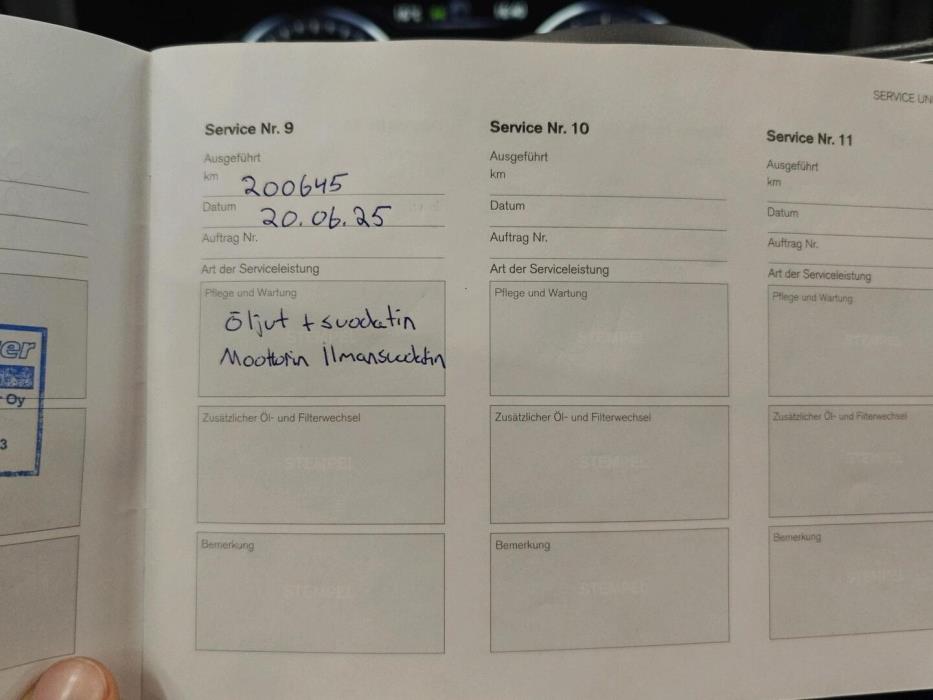 SERVICE UN
er
Oy
3
Service Nr. 9
Ausgeführt
km 200645
Datum 20.06.25
Auftrag Nr.
Art der Serviceleistung
Pflege und Wartung
Öljyt + suodatin
Moottorin Ilmansuodatin
Zusätzlicher Öl- und Filterwechsel
STEMPEL
Bemerkung
STEMPEL
Service Nr. 10
Ausgeführt
km
Datum
Auftrag Nr.
Art der Serviceleistung
Pflege und Wartung
STEMPEL
Zusätzlicher Öl- und Filterwechsel
STEMPEL
Bemerkung
STEMPEL
Service Nr. 11
Ausgeführt
km
Datum
Auftrag Nr.
Art der Serviceleistung
Pflege und Wartung
STEMPEL
Zusätzlicher Öl- und Filterwechsel
STEMPEL
Bemerkung
STEMPEL